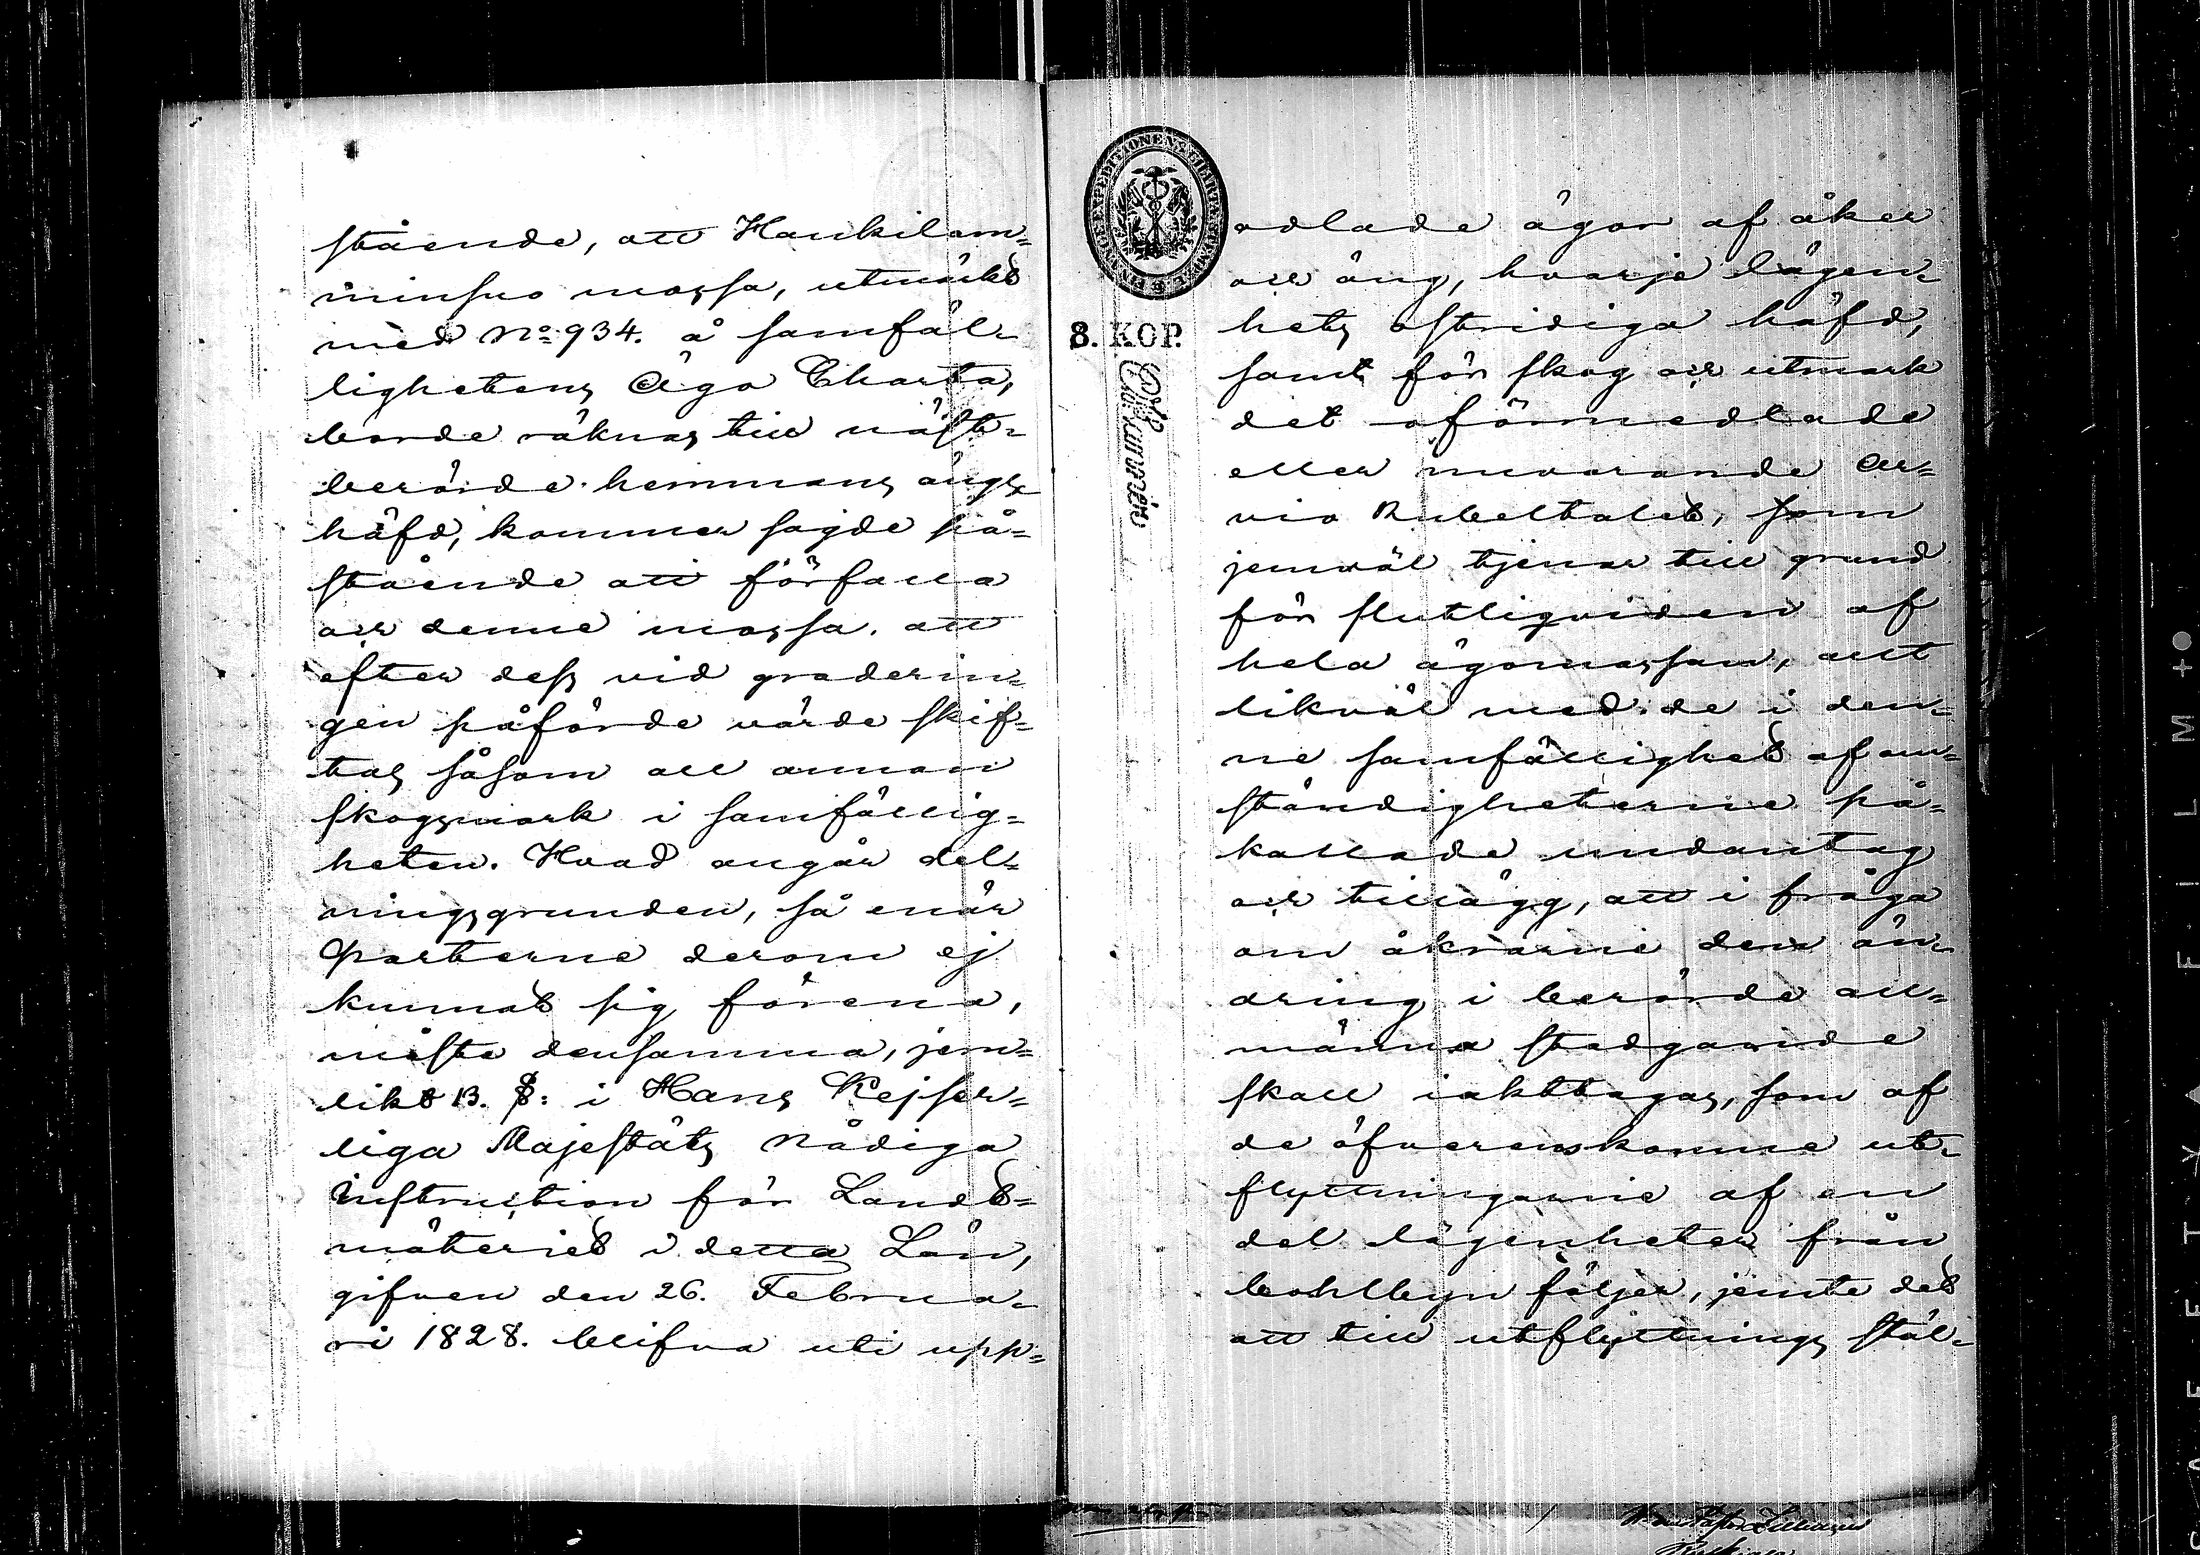 stående, att Haukilam=
minsuo mossa, utmärkt
med No: 934. å samfäl-
lighetens Ägo Charta,
borde räknas till näst-
berörde hemmans ängs
häfd, kommer sagde på=
stående att förfalla
och denne mossa att
efter dess vid graderin=
gen påförde värde skif=
tas såsom all annan
skogsmark i samfällig=
heten. Hvad angår del-
ningsgrunden, så enär
Parterne derom ej
kunnat sig förena,
måste densamma, jem=
likt 13. §: i Hans Kejser=
liga Majestäts Nådiga
Instruction för Landt=
mäteriet i detta Län,
gifven den 26. Februa-
ri 1828. blifva uti upp=
FINANCEEXPEDITIONENS CHARTÆ
8. KOP.
odlade ägor af åker
och äng, hvarje lägen-
hets ostridiga häfd,
samt för skog och utmark
det oförmedlade
eller nuvarande Ar=
vio Rubeltalet, som
jemväl tjenar till grund
för slutliqviden af
hela ägomassan, allt
likväl med de i den-
ne samfällighet af om=
ständigheterne på=
kallade undantag
och tillägg, att i fråga
om åkrarne den än-
dring i berörde all=
männa stadgande
skall iakttagas, som af
de öfverenskomne ut-
flyttningarne af en
del lägenheter från
bohlbyn följer, jemte det
att till utflyttnings stäl-